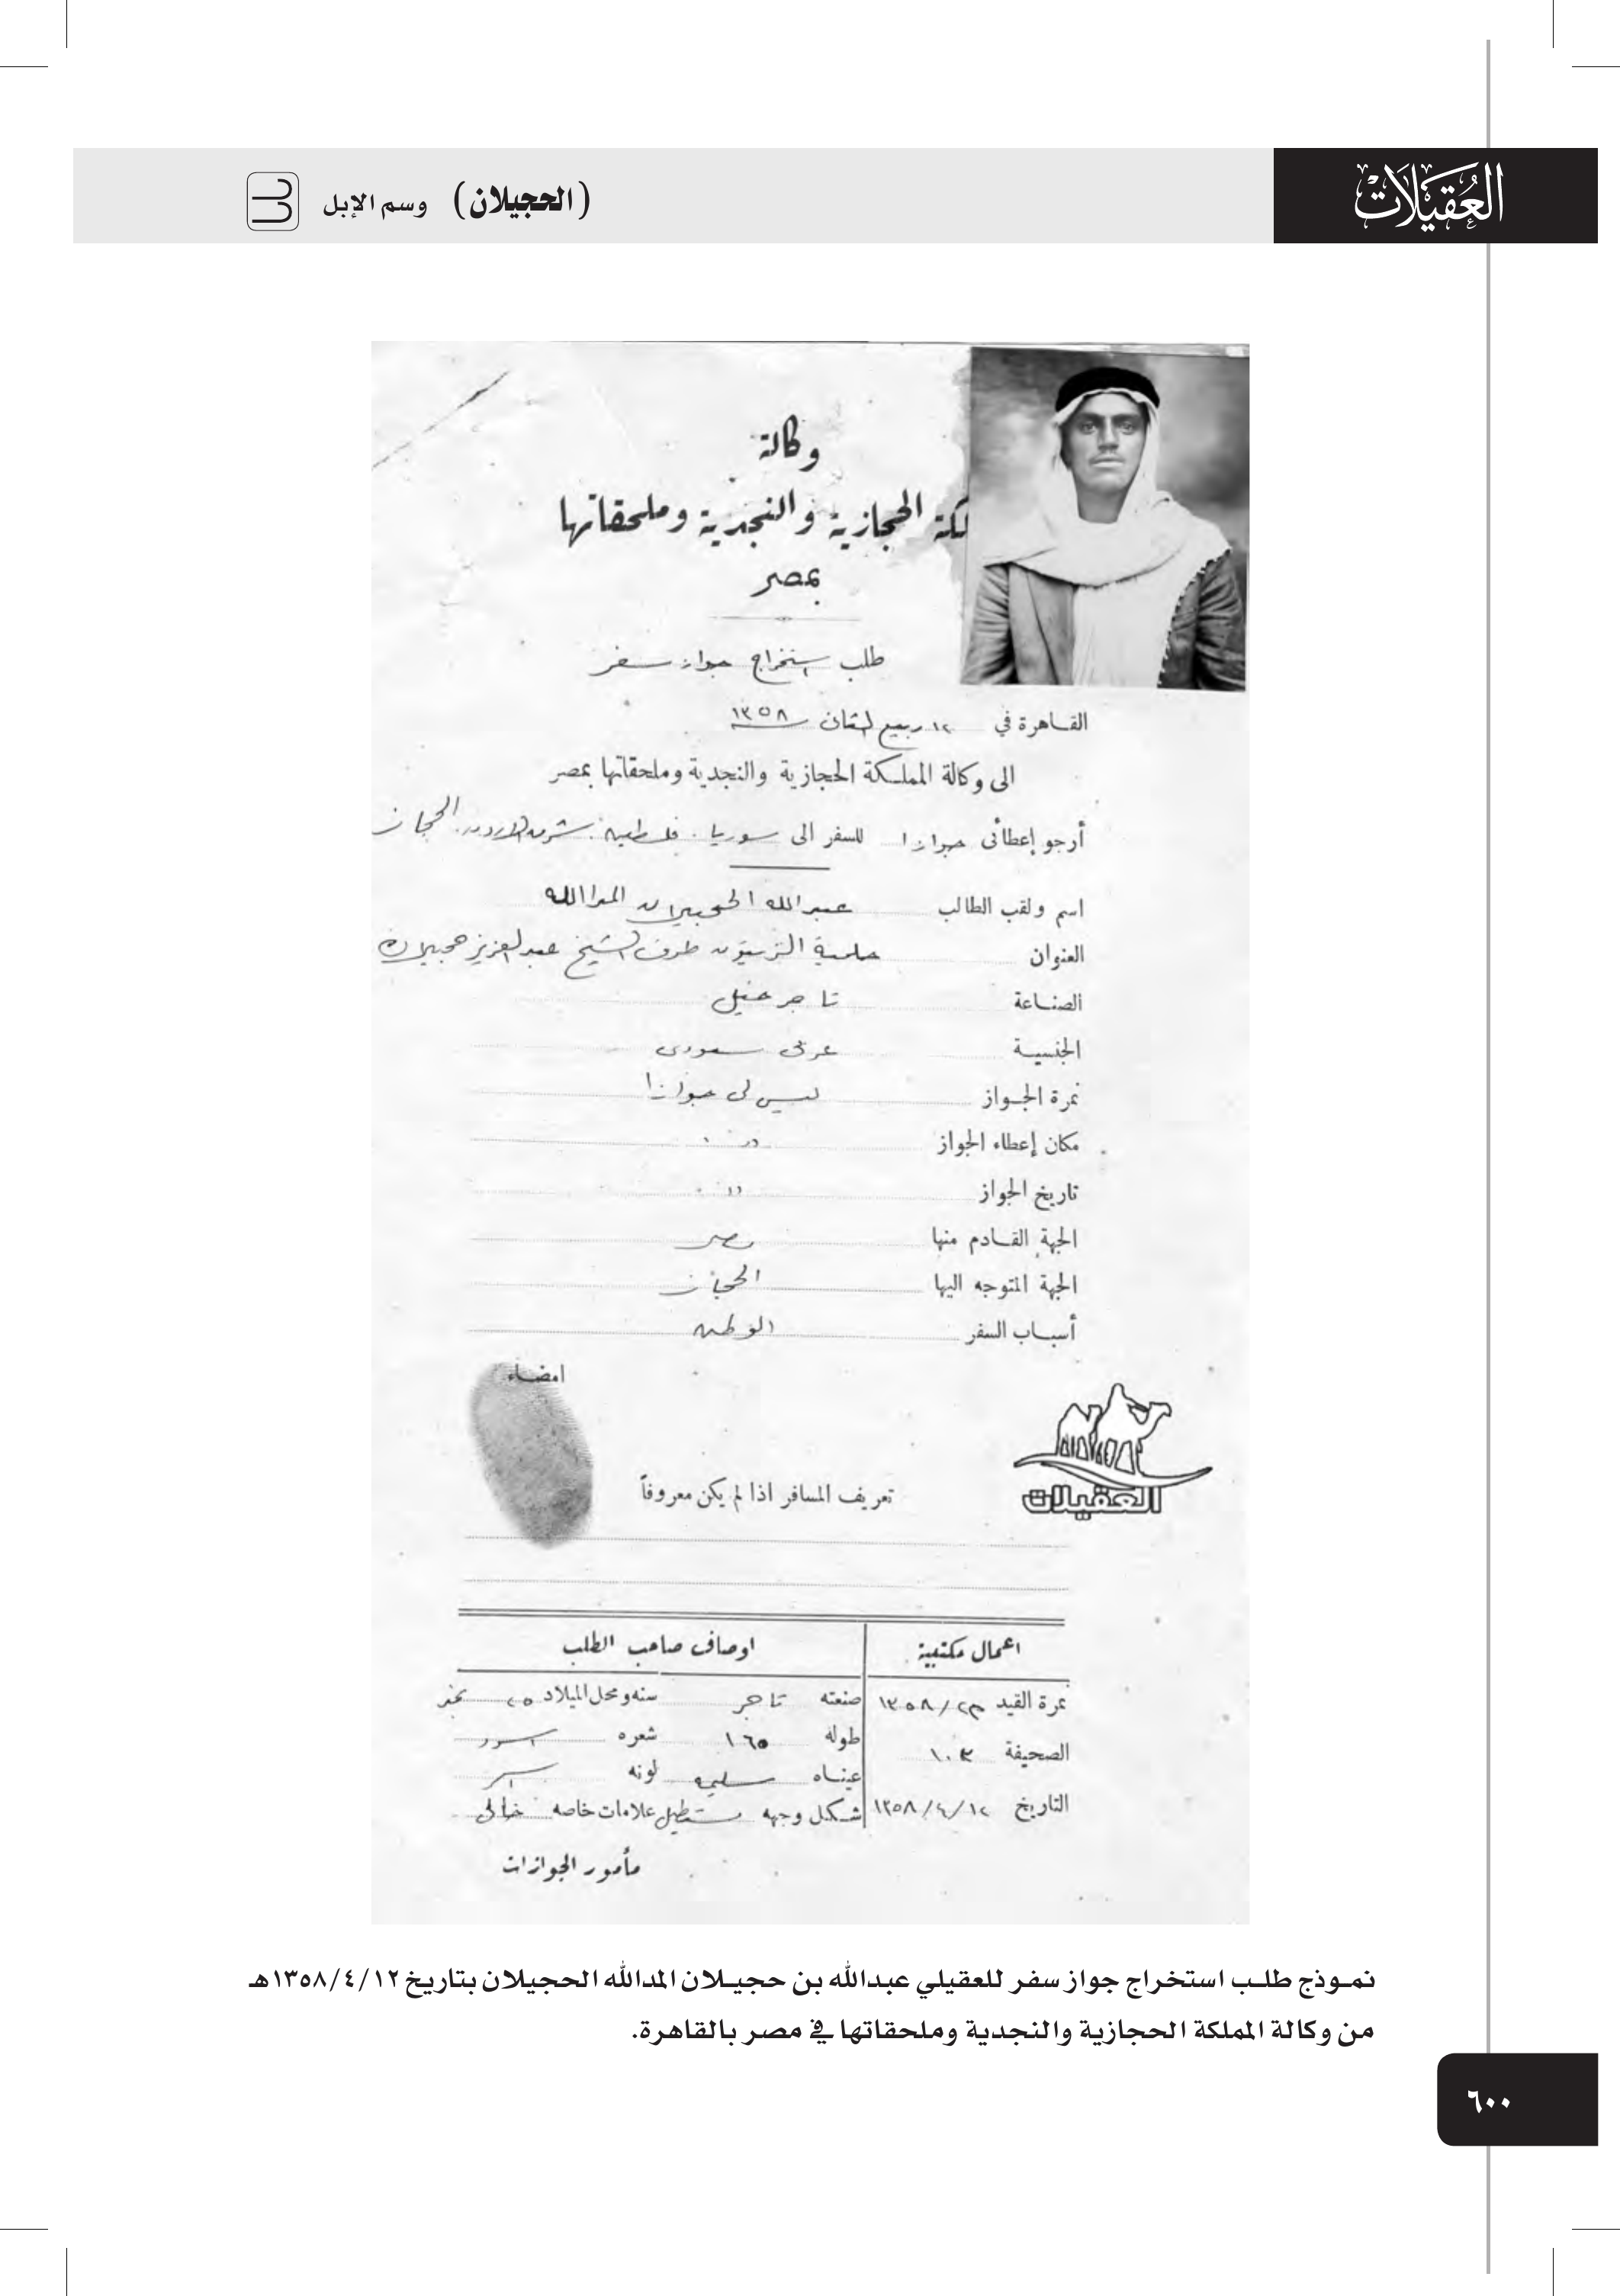 العُقيلات
(الحجيلان) وسم الإبل
وكالة
لكة الحجازية والنجدية وملحقاتها
بمصر
طلب استخراج جواز سفر
القاهرة في ١٢ ربيع الثان ١٣٥٨
الى وكالة المملكة الحجازية والنجدية وملحقاتها بمصر
أرجو إعطائى جوازا للسفر الى سوريا. فلسطين. شرق الاردن. الحجاز
اسم ولقب الطالب عبد الله الحجيلان المدالله
العنوان حلمية الزيتون طرف الشيخ عبد العزيز حجيلان
الصناعة تاجر خيل
الجنسية عربى سعودى
نمرة الجواز ليس لى جوازا
مكان إعطاء الجواز
تاريخ الجواز
الجهة القادم منها مصر
الجهة المتوجه اليها الحجاز
أسباب السفر الوطن
امضاء
تعريف المسافر اذا لم يكن معروفاً
العقيلات
اعمال مكتبية
اوصاف صاحب الطلب
نمرة القيد ٢٣/١٣٥٨ صنعته تاجر سنه ومحل الميلاد ٢٥ نجد
الصحيفة ١٠٣ طوله ١٦٥ شعره اسود
عيناه سليمه لونه اسمر
التاريخ ١٣٥٨/٤/١٢ شكل وجهه مستطيل علامات خاصه خالى
مأمور الجوازات
نموذج طلب استخراج جواز سفر للعقيلي عبدالله بن حجيلان المدالله الحجيلان بتاريخ ١٣٥٨/٤/١٢هـ
من وكالة المملكة الحجازية والنجدية وملحقاتها في مصر بالقاهرة.
٦٠٠